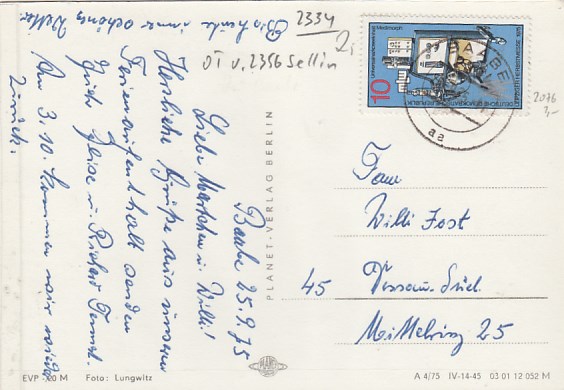 Bis heute immer schönes Wetter
2334
2,
OT v. 2356 Sellin
2076
3,-
10
DEUTSCHE DEMOKRATISCHE REPUBLIK
BAABE
aa
Baabe 25.9.75
Liebe Martchen u. Willi!
Herzliche Grüße aus unserem
Ferienaufenthalt senden
Grete Heise u. Richard
Am 3.10. kommen wir wieder
zurück.
PLANET-VERLAG BERLIN
PLANET
Fam
Willi Jost
45 Dessau-Süd
Mittelring 25
EVP -20 M Foto: Lungwitz
A 4/75 IV-14-45 03 01 12 052 M